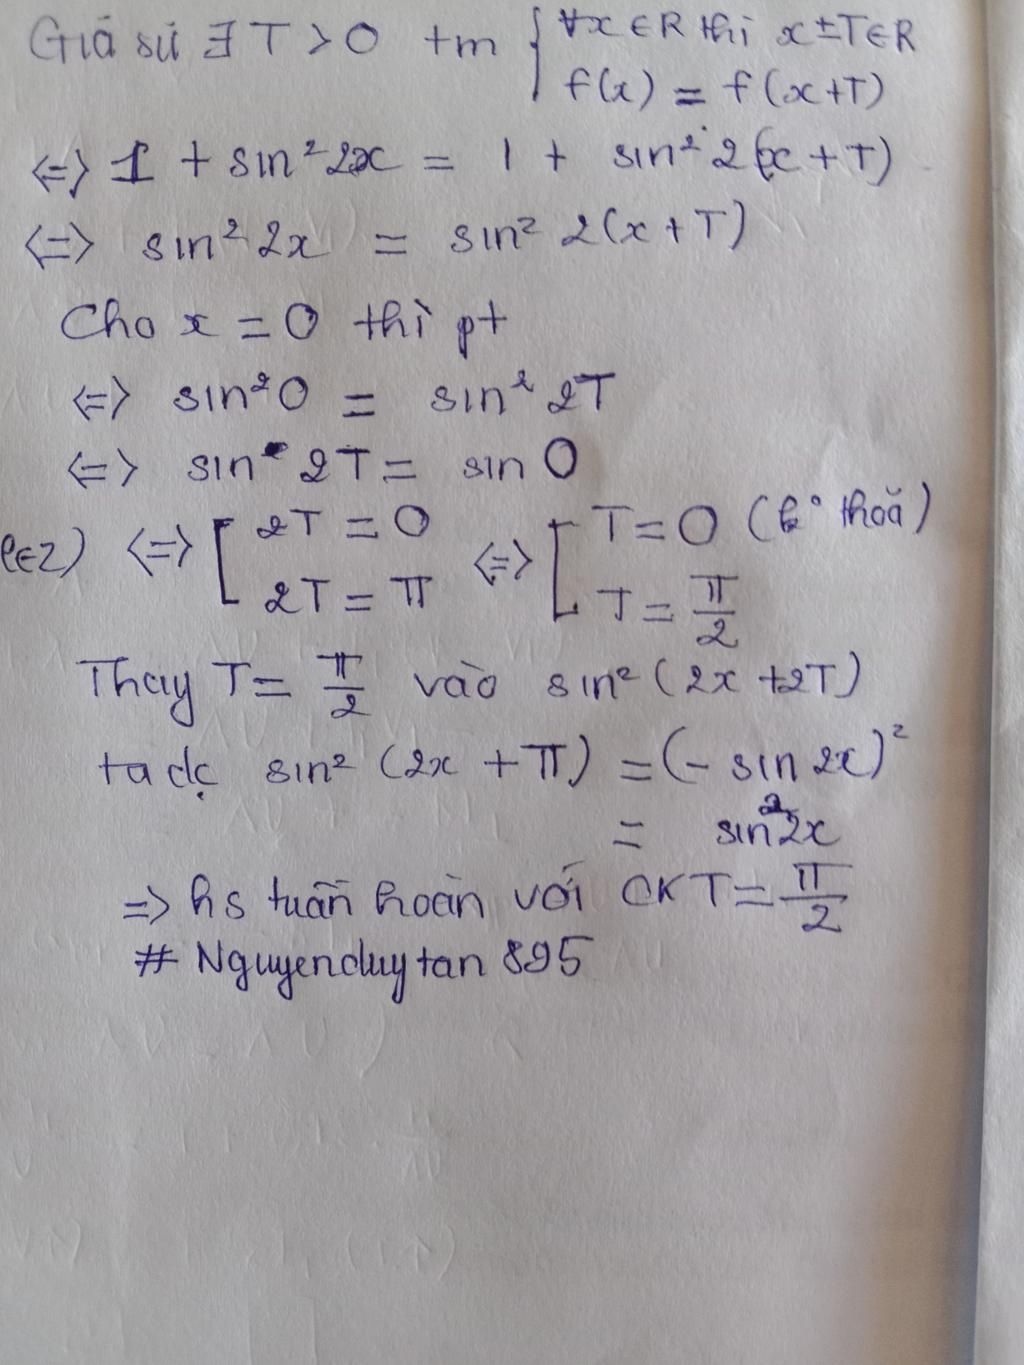 Giả sử ∃ T > 0 tm { ∀x ∈ R thì x ± T ∈ R
f(x) = f(x+T)
<=> 1 + sin² 2x = 1 + sin² 2(x + T)
<=> sin² 2x = sin² 2(x + T)
Cho x = 0 thì pt
<=> sin² 0 = sin² 2T
<=> sin 2T = sin 0
∈Z) <=> [ 2T = 0 <=> [ T = 0 (k° thoã)
2T = π T = π/2
Thay T = π/2 vào sin² (2x + 2T)
ta dc sin² (2x + π) = (- sin 2x)²
= sin² 2x
=> hs tuần hoàn với CK T = π/2
# Nguyenduytan 895